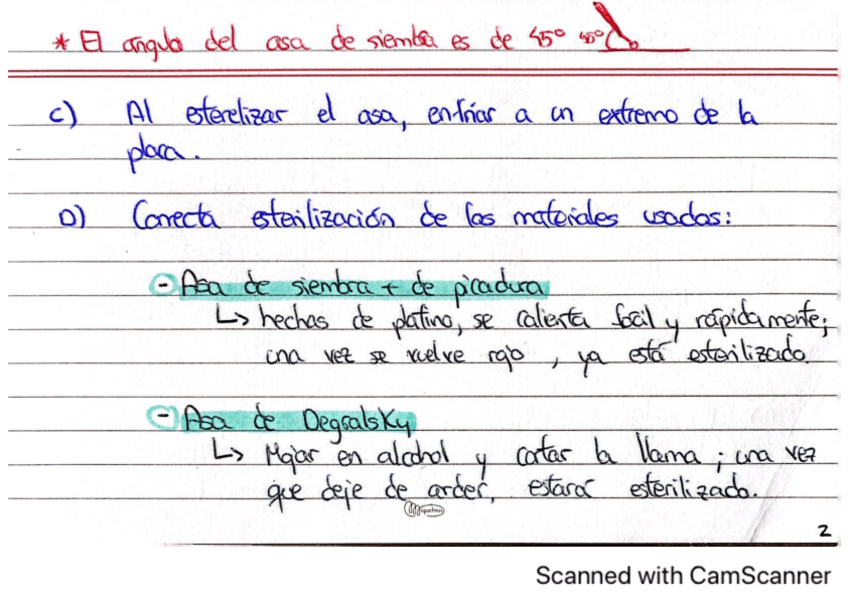 * El angulo del asa de siembra es de 45° 45°
c) Al esterelizar el asa, enfriar a un extremo de la
placa.
D) Correcta esterilización de los materiales usados:
- Asa de siembra + de picadura
↳ hechas de platino, se calienta facil y rápidamente;
una vez se vuelve rojo, ya está esterilizado
- Asa de Degralsky
↳ Mojar en alcohol y cortar la llama; una vez
que deje de arder, estará esterilizado.
2
Scanned with CamScanner